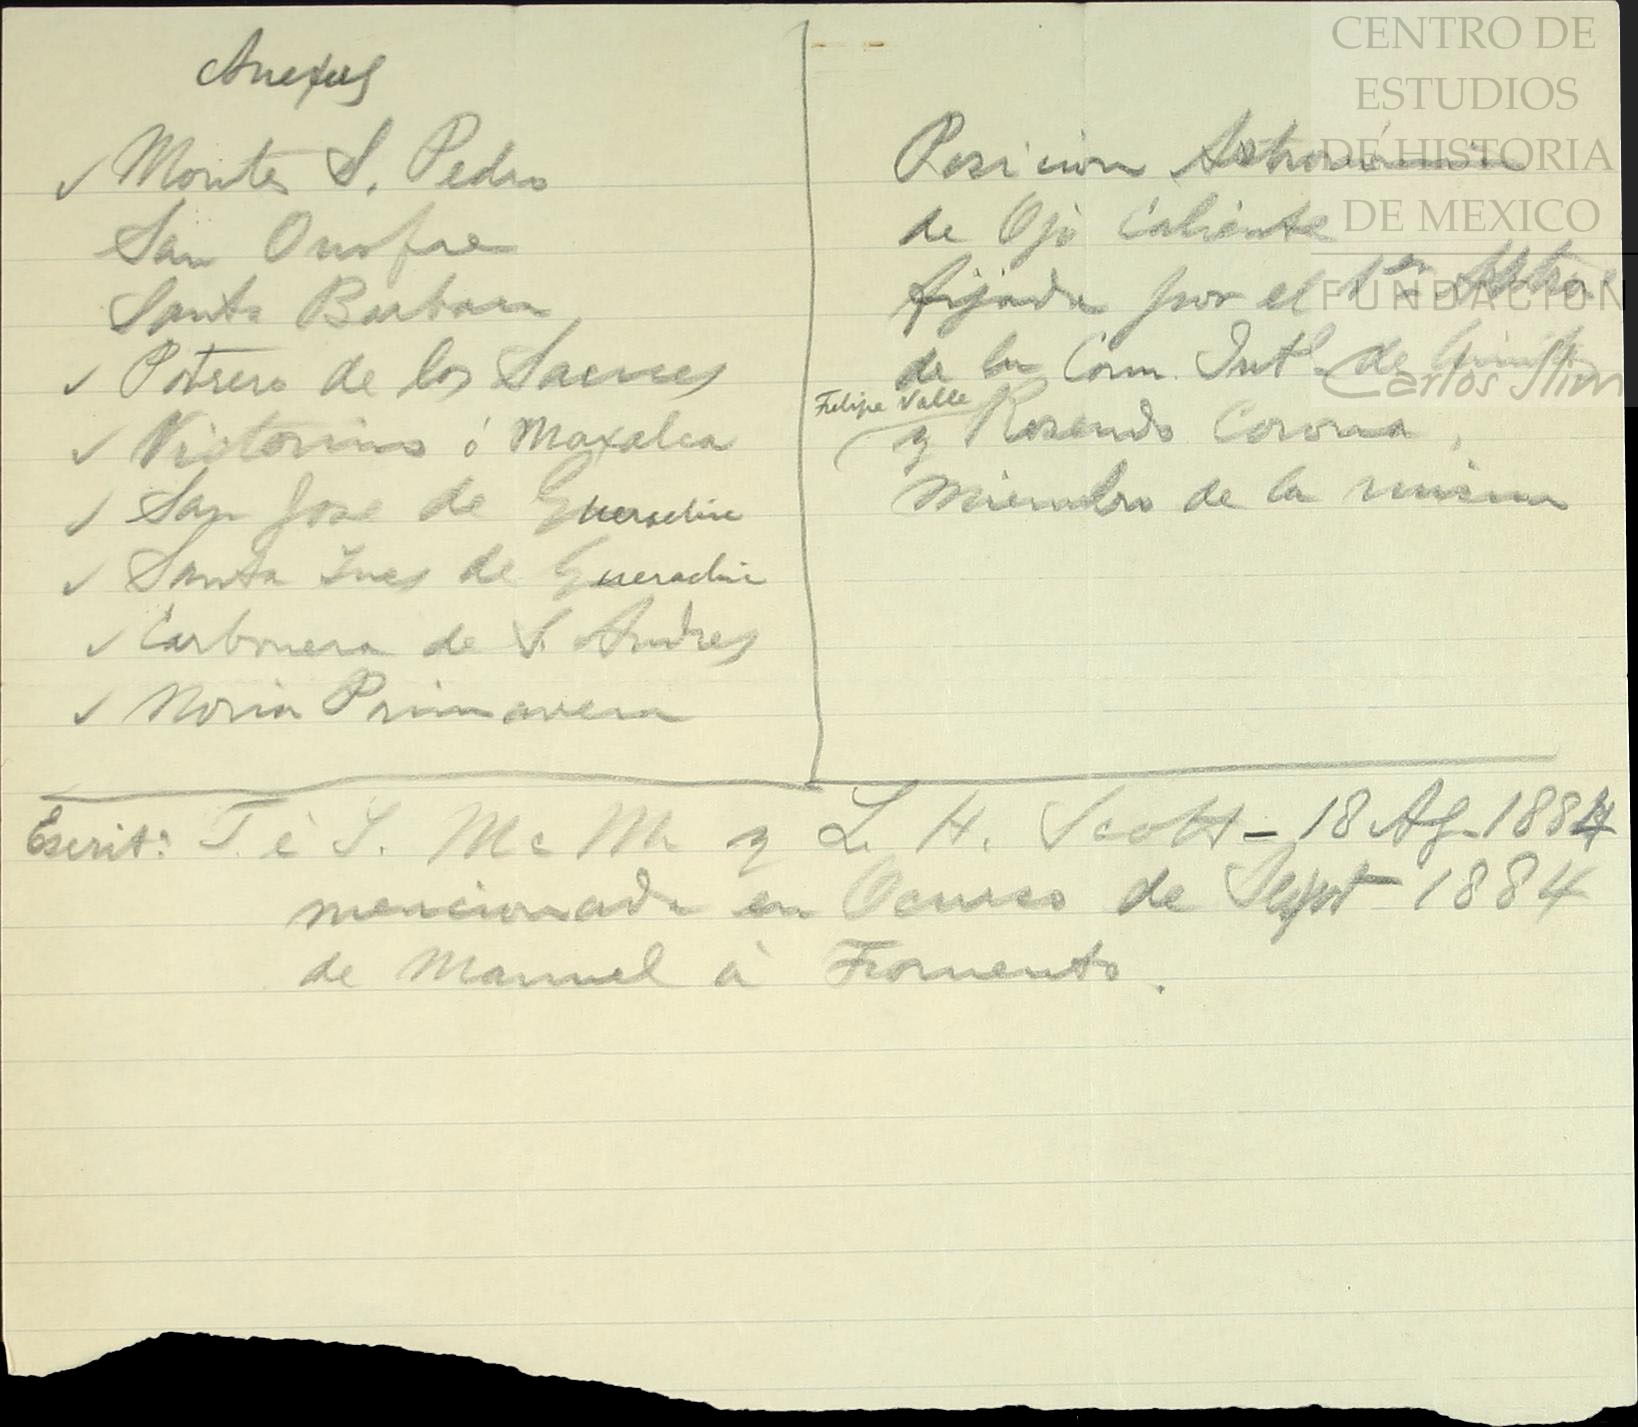 Anexos
✓ Montes S. Pedro
San Onofre
Santa Barbara
✓ Potrero de los Saenes
✓ Victorino ó Maxalca
✓ San Jose de Guerachic
✓ Santa Ines de Guerachic
✓ Carbonera de S. Andres
✓ Noria Primavera
Posicion Astronomica
de Ojo Caliente
fijada por el 1er Astro.
de la Com. Intl. de
Felipe Valle
y Rosendo Corona,
miembro de la misma
Escrit: T. é S. Mc M. y L. H. Scott - 18 Ag. 1884
mencionada en Ocurso de Sept 1884
de Manuel á Fomento.
CENTRO DE
ESTUDIOS
DE HISTORIA
DE MEXICO
FUNDACIÓN
Carlos Slim